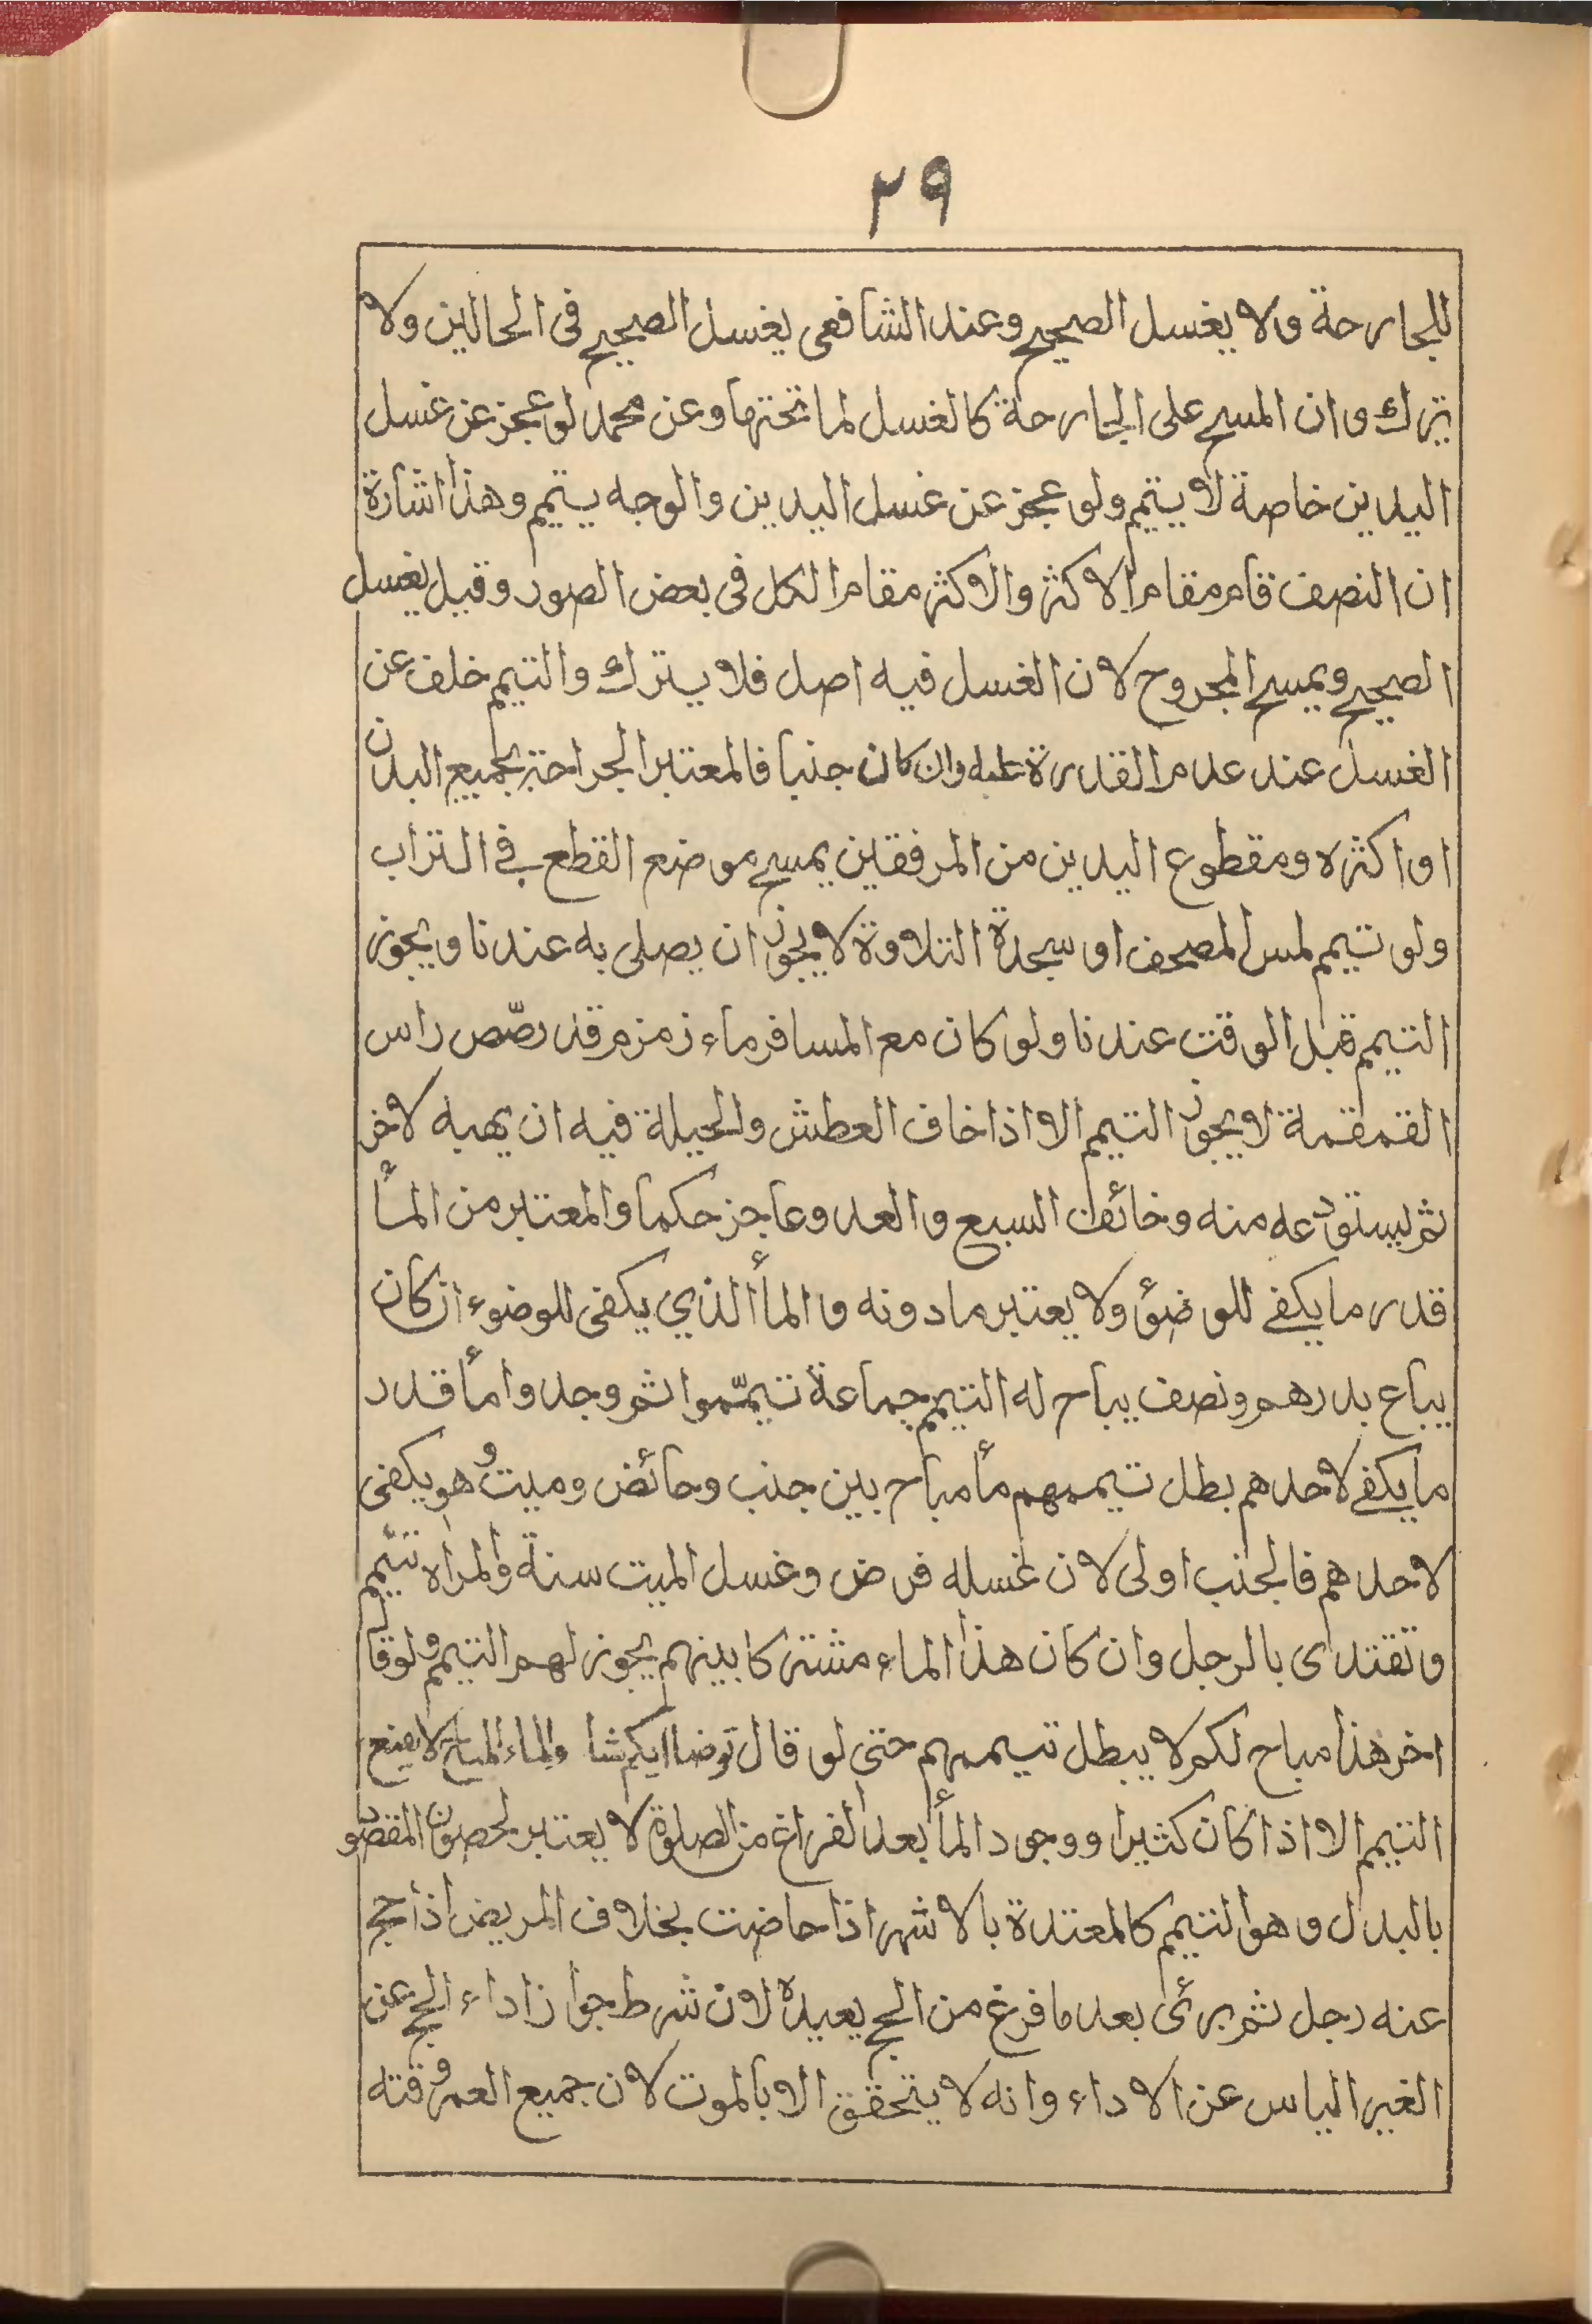 ٢٩
للجارحة ولا يغسل الصحيح وعند الشافعى يغسل الصحيح فى الحالين ولا
يترك وان المسح على الجارحة كالغسل لما تحتها وعن محمد لو عجز عن غسل
اليدين خاصة لا يتيمم ولو عجز عن غسل اليدين والوجه يتيمم وهذا اشارة
ان النصف قام مقام الاكثر والاكثر مقام الكل فى بعض الصور وقيل يغسل
الصحيح ويمسح المجروح لان الغسل فيه اصل فلا يترك والتيمم خلف عن
الغسل عند عدم القدرة عليه وان كان جنبا فالمعتبر الجراحة بجميع البدن
او اكثره ومقطوع اليدين من المرفقين يمسح موضع القطع في التراب
ولو تيمم لمس المصحف او سجدة التلاوة لا يجوز ان يصلى به عندنا ويجوز
التيمم قبل الوقت عندنا ولو كان مع المسافر ماء زمزم قد رصّص راس
القمقمة لا يجوز التيمم الا اذا خاف العطش والحيلة فيه ان يهبه لاخر
ثم ليستودعه منه وخائف السبع والعدو عاجز حكما والمعتبر من المأ
قدر ما يكفى للوضؤ ولا يعتبر ما دونه والمأ الذي يكفى للوضوء ان كان
يباع بدرهم ونصف يباح له التيمم جماعة تيمّموا ثم وجدوا مأ قدر
ما يكفى لاحدهم بطل تيممهم مأ مباح بين جنب وحائض وميت وهو يكفى
لاحدهم فالجنب اولى لان غسله فرض وغسل الميت سنة والمراه تتيمم
وتقتدى بالرجل وان كان هذا الماء مشتركا بينهم يجوز لهم التيمم ولو قال
اخر هذا مباح لكم لا يبطل تيممهم حتى لو قال توضا ايكم شا والماء المباح لا يمنع
التيمم الا اذا كان كثيرا ووجود المأ بعد الفراغ من الصلوة لا يعتبر لحصول المقصود
بالبدل وهو التيمم كالمعتدة بالاشهر اذا حاضت بخلاف المريض اذا حج
عنه رجل ثم برئ بعد ما فرغ من الحج يعيده لان شرط جواز اداء الحج عن
الغير الياس عن الاداء وانه لا يتحقق الا بالموت لان جميع العمر وقته